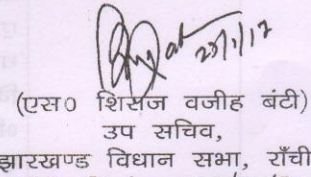 23/1/12
(एस० शिराज वजीह बंटी)
उप सचिव,
झारखण्ड विधान सभा, राँची